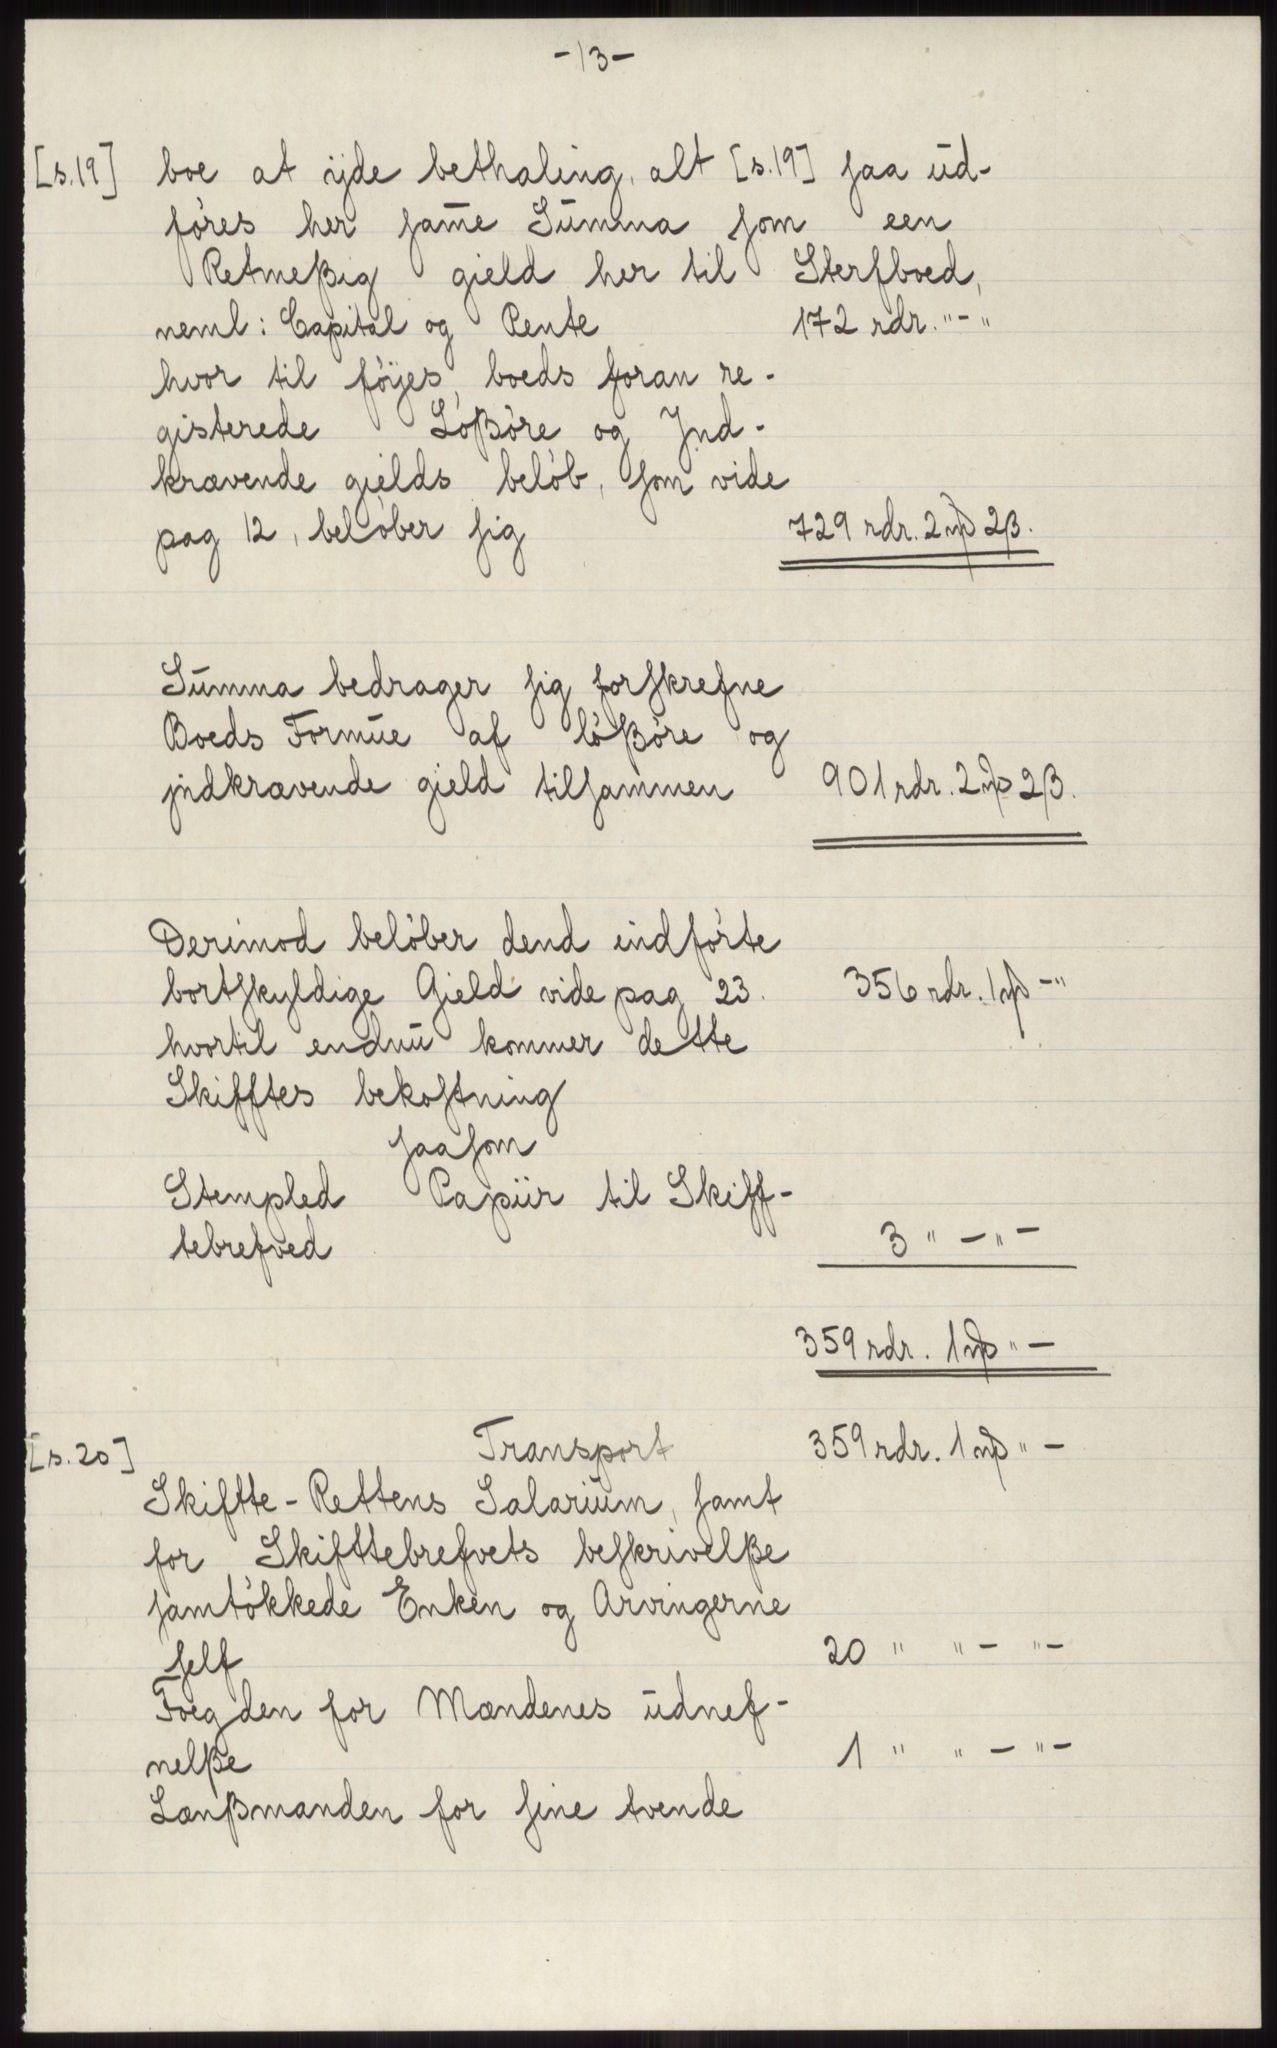 -13-
[s.19] boe at ijde bethaling, alt [s.19] saa ud-
føres her same Summa som een
Retmeßig gield her til Sterfboed,
neml: Capital og Rente 172 rdr. "-"
hvor til føyes, boeds foran re-
gisterede Løßøre og Jnd-
krævende gields beløb, som vide
pag 12, beløber sig 729 rdr. 2 mþ 2β.
Summa bedrager sig forskrefne
Boeds Formue af løßøre og
jndkrævende gield tilsammen 901 rdr. 2 mþ 2β.
Derimod beløber dend indførte
bortskyldige Gield vide pag 23. 356 rdr. 1 mþ -"
hvortil endnu kommer dette
Skifftes bekostning
saasom
Stempled Papiir til Skiff-
tebrefved 3 " - " -
359 rdr. 1 mþ " -
[s.20] Transport 359 rdr. 1 mþ " -
Skiftte-Rettens Salarium, samt
for Skifttebrefvets beskrivelße
samtøkkede Enken og Arvingerne
self 20 " " - " -
Foegden for Mændenes udnef-
nelße 1 " " - " -
Lænßmanden for sine tvende